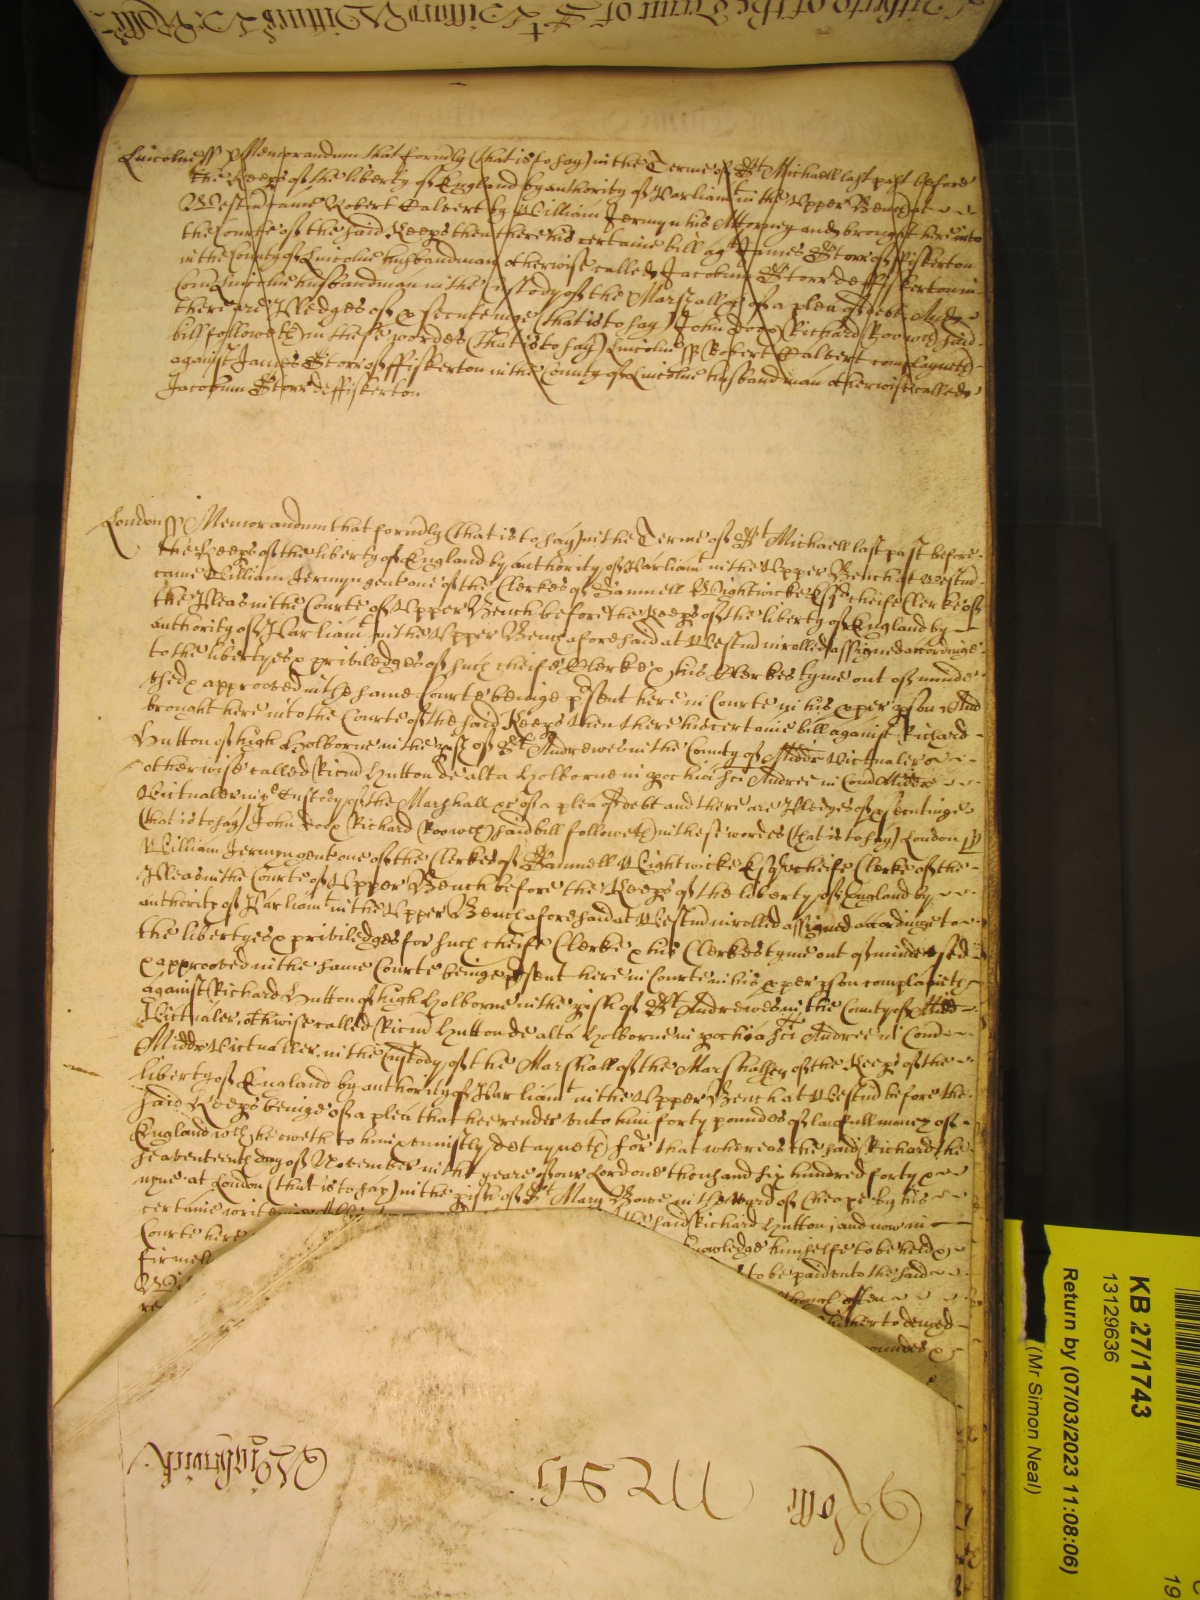 Lincolne ss Memorandum that formerly (that is to say) in the Terme of St Michaell last past before
the Keeps of the liberty of England by authority of Parliamt in the Upper Bench at
Westm came Robert Calvert by William Jermyn his Attorney and brought here into
the Courte of the said Keeps then there his certaine bill agt James Storr of Fiskerton
in the County of Lincolne husbandman otherwise called Jacobum Storr de ffiskerton in
Com Lincolne husbandman in the Custody of the Marshall &c of a plea of debt And
there are Pledges of &c (that is to say) John Doo & Richard Roo wch said
bill followeth in these wordes (that is to say) Lincolne ss Robert Calvert complayneth
against James Storr of ffiskerton in the County of Lincolne husbandman otherwise called
Jacobum Storr de ffiskerton
London ss Memorandum that formerly (that is to say) in the Terme of St Michaell last past before
the Keeps of the liberty of England by authority of Parliamt in the Upper Bench at Westm
came William Jermyn gent one of the Clerkes of Samuell Wightwicke Esqr cheife Clerke of
the Pleas in the Courte of Upper Bench before the Keeps of the liberty of England by
authority of Parliamt in the Upper Bench aforesaid at Westm inrolled assigned accordinge
to the libertyes & priviledges of such cheife Clerke & his Clerkes tyme out of minde
used & approoved in the same Courte beinge psent here in Courte in his pper pson And
brought here into the Courte of the said Keeps then there his certaine bill against Richard
Hutton of high Holborne in the pish of St Andrewes in the County of Middx Victualer
otherwise called Ricm Hutton de alta Holborne in pochia sci Andree in Com Middx
Victualer in ye Custody of the Marshall &c of a plea of debt and there are Pledges of psecutinge
(that is to say) John Doo & Richard Roo wch said bill followeth in these wordes (that is to say) London ss
William Jermyn gent one of the Clerkes of Samuell Wightwicke Esqr cheife Clerke of the
Pleas in the Courte of Upper Bench before the Keeps of the liberty of England by
authority of Parliamt in the Upper Bench aforesaid at Westm inrolled assigned accordinge to
the libertyes & priviledges for such cheife Clerke & his Clerkes tyme out of minde used
& approoved in the same Courte beinge psent here in Courte in his pper pson complaineth
against Richard Hutton of high Holborne in the pish of St Andrewes in the County of Midd
Victualer othwise called Ricm Hutton de alta Holborne in pochia sci Andree in Com
Middx Victualler in the Custody of the Marshall of the Marshalsey of the Keeps of the
liberty of England by authority of Parliamt in the Upper Bench at Westm before the
said Keeps beinge of a plea that hee render unto him forty poundes of lawfull money of
England wch he oweth to him & uniustly detayneth For that whereas the said Richard the
seaventeenth day of November in the yeare of our Lord one thousand six hundred forty &
nyne at London (that is to say) in the pish of St Mary Bowe in the Ward of Cheape by his
certaine writeinge the said Richard Hutton; and now in
Courte here knowledge himselfe to be held &
firmely to be paid unto the said
often
hitherto denyed
poundes &
Rolle M 3 5i Wightwick
KB 27/1743
13129636
Return by (07/03/2023 11:08:06)
(Mr Simon Neal)
19